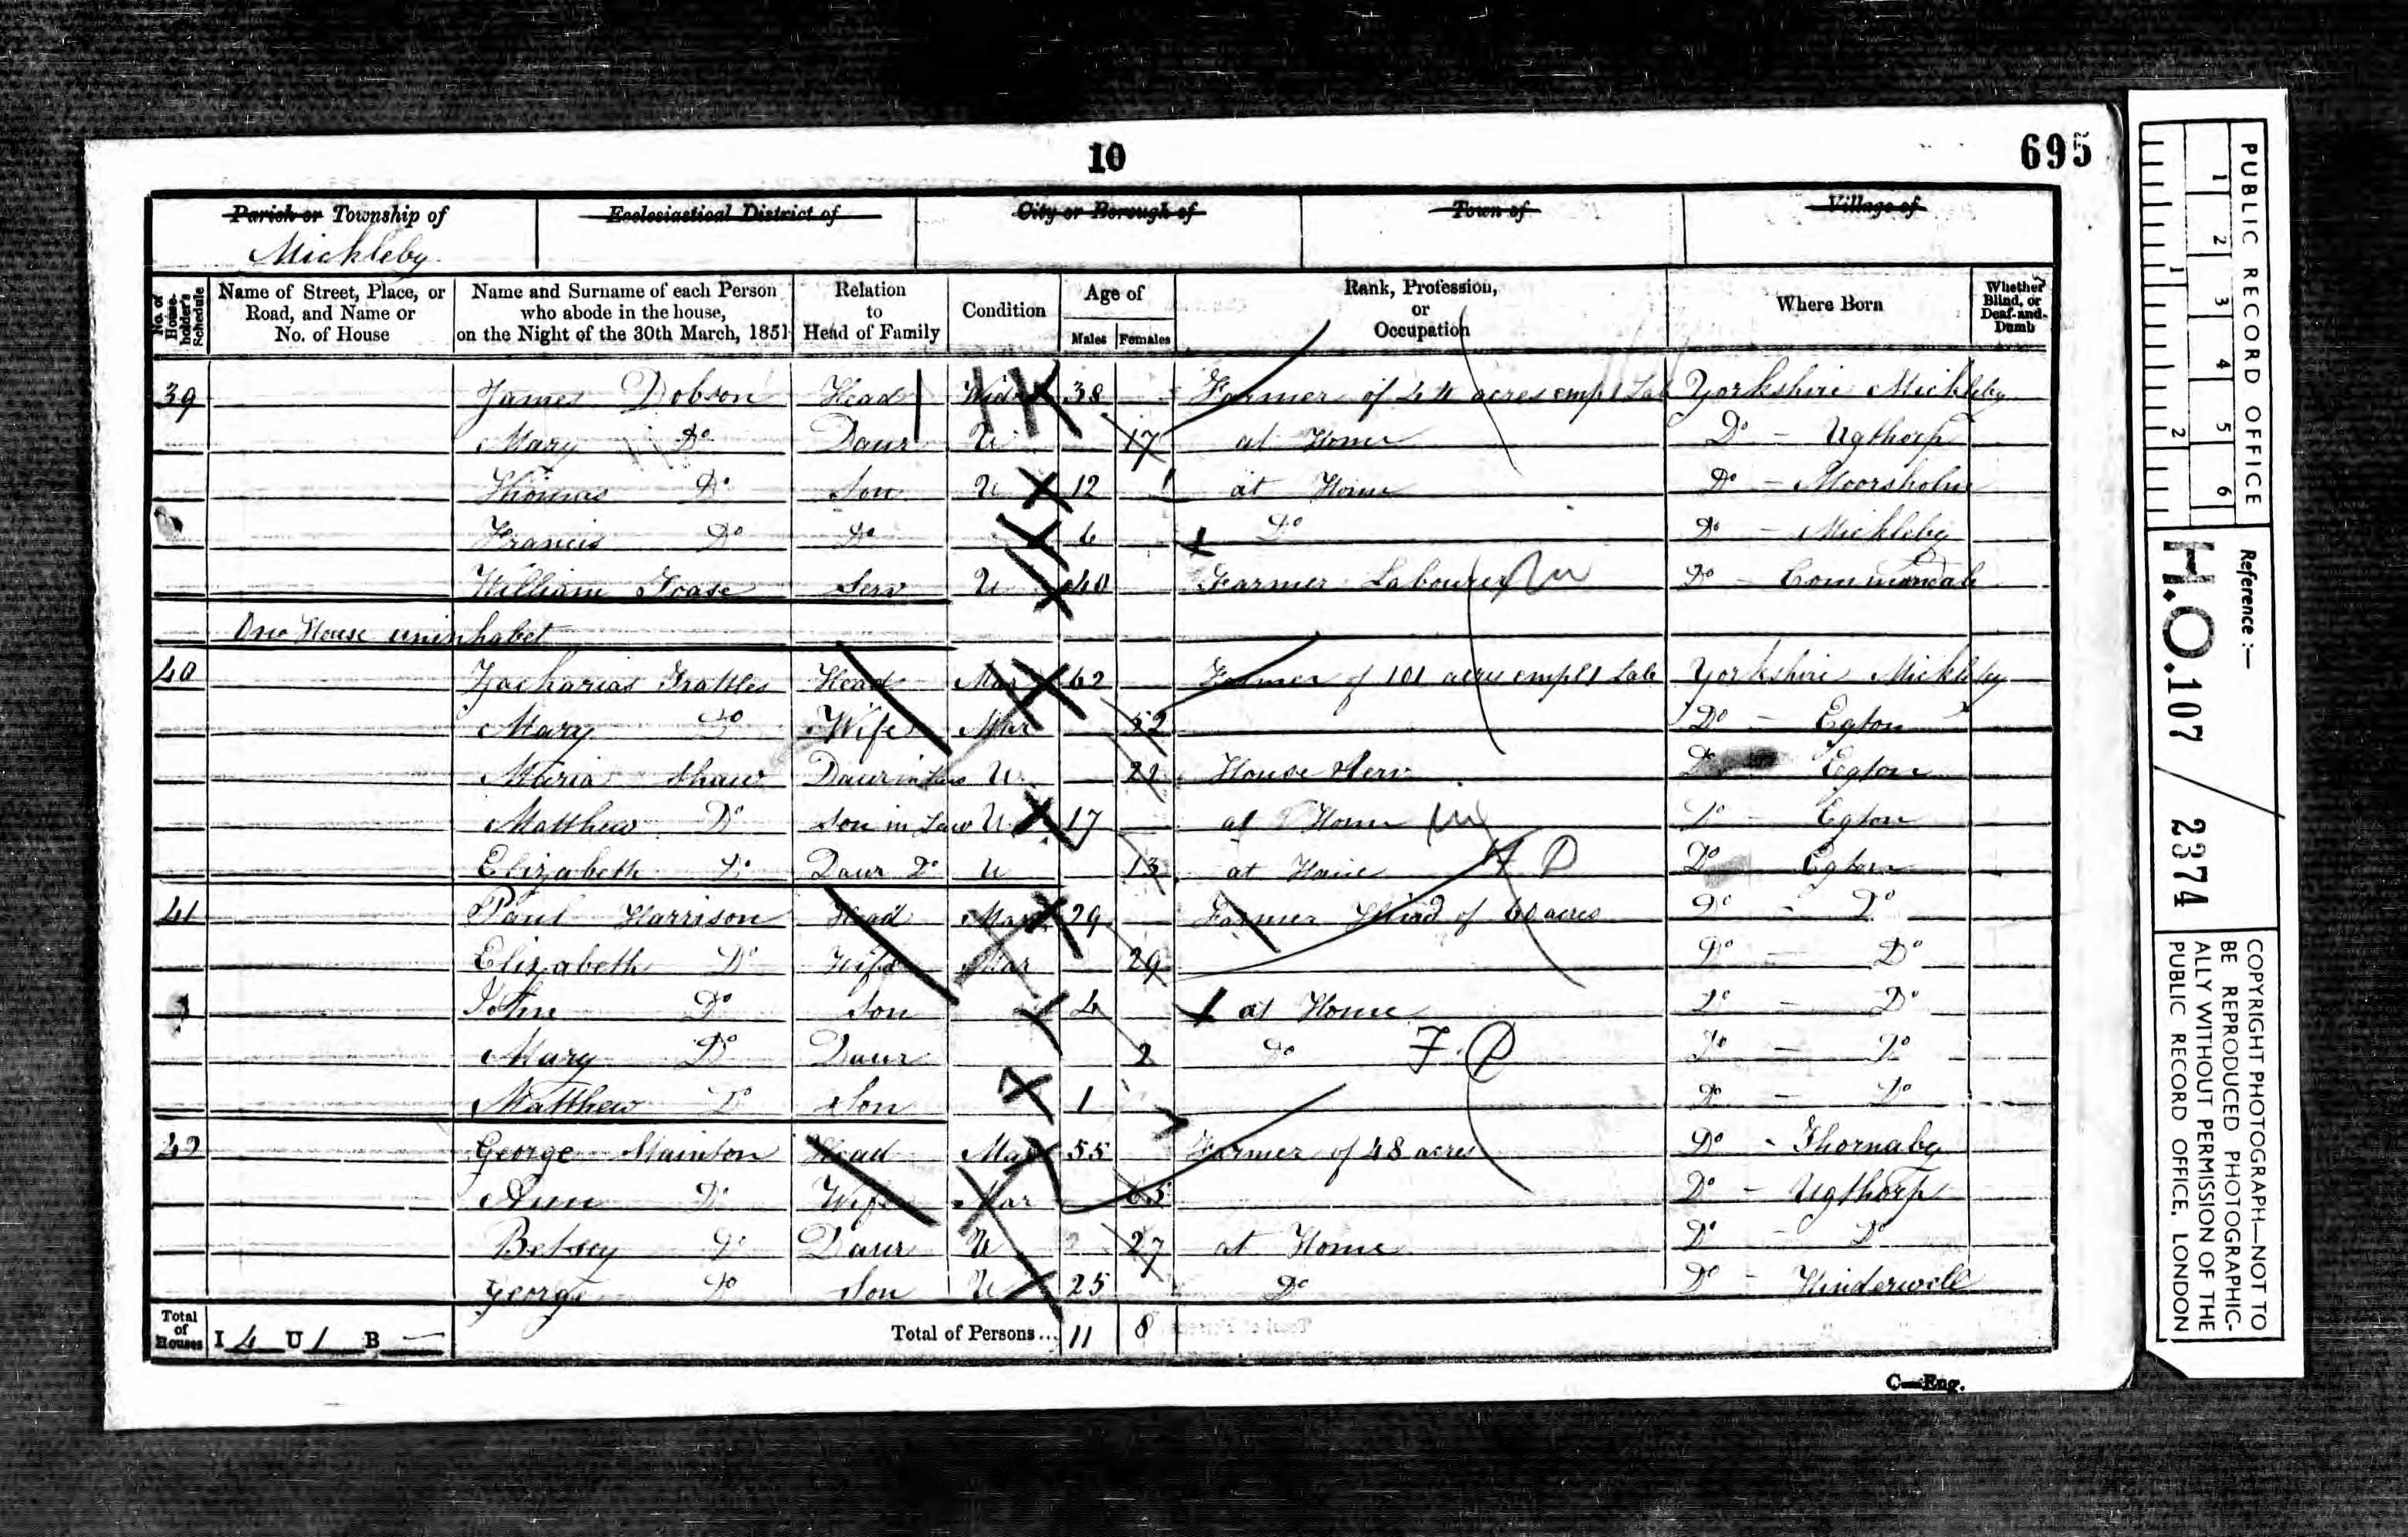 10
695
Parish or Township of Ecclesiastical District of City or Borough of Town of Village of
Mickleby
No. of House-holder's Schedule
Name of Street, Place, or Road, and Name or No. of House
Name and Surname of each Person who abode in the house, on the Night of the 30th March, 1851
Relation to Head of Family
Condition
Age of
Males Females
Rank, Profession, or Occupation
Where Born
Whether Blind, or Deaf-and-Dumb
39 James Dobson Head Widr 38 Farmer of 44 acres empl Lab Yorkshire Mickleby
Mary Do Daur U 17 at Home Do - Ugthorp
Thomas Do Son U 12 at Home Do - Moorsholm
Francis Do Do 6 Do Do - Mickleby
William Toase Serv U 40 Farmer Labourer Do - Commondale
One House uninhabet
40 Zacharias Frattles Head Mar 62 Farmer of 101 acres empl 1 Lab Yorkshire Mickleby
Mary Do Wife Mar 52 Do - Egton
Maria Shaw Daur in Law U 21 House Serv Do Egton
Matthew Do Son in Law U 17 at Home Do - Egton
Elizabeth Do Daur Do U 13 at Home Do Egton
41 Paul Harrison Head Mar 29 Farmer of 60 acres Do - Do
Elizabeth Do Wife Mar 29 Do - Do
John Do Son 4 at Home Do - Do
Mary Do Daur 2 Do Do - Do
Matthew Do Son 1 Do - Do
42 George Stainton Head Mar 55 Farmer of 48 acres Do - Thornaby
Ann Do Wife Mar 65 Do - Ugthorp
Betsey Do Daur U 27 at Home Do - Do
George Do Son U 25 Do Do - Hinderwell
Total of Houses I 4 U 1 B —
Total of Persons... 11 8
C—Eng.
PUBLIC RECORD OFFICE
1 2 3 4 5 6
1 2
Reference :—
H.O.107 / 2374
COPYRIGHT PHOTOGRAPH—NOT TO
BE REPRODUCED PHOTOGRAPHIC-
ALLY WITHOUT PERMISSION OF THE
PUBLIC RECORD OFFICE, LONDON